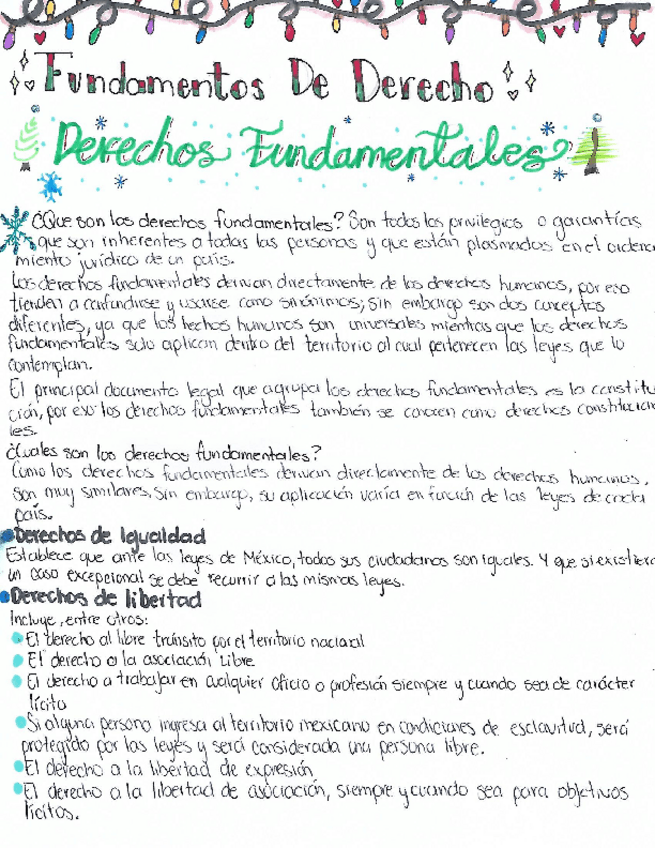 Fundamentos De Derecho
Derechos Fundamentales
¿Que son los derechos fundamentales? Son todos los privilegios o garantías
que son inherentes a todas las personas y que están plasmados en el ordena
miento jurídico de un país.
Los derechos fundamentales derivan directamente de los derechos humanos, por eso
tienden a confundirse y usarse como sinónimos; sin embargo son dos conceptos
diferentes, ya que los hechos humanos son universales mientras que los derechos
fundamentales solo aplican dentro del territorio al cual pertenecen las leyes que lo
contemplan.
El principal documento legal que agrupa los derechos fundamentales es la constitu
ción, por eso los derechos fundamentales también se conocen como derechos constitucion
les.
¿Cuales son los derechos fundamentales?
Como los derechos fundamentales derivan directamente de los derechos humanos,
son muy similares, sin embargo, su aplicación varía en función de las leyes de cada
país.
Derechos de Igualdad
Establece que ante las leyes de México, todos sus ciudadanos son iguales. Y que si existiera
un caso excepcional se debe recurrir a las mismas leyes.
Derechos de libertad
Incluye, entre otros:
El derecho al libre tránsito por el territorio nacional
El derecho a la asociación libre
El derecho a trabajar en cualquier oficio o profesión siempre y cuando sea de carácter
lícito
Si alguna persona ingresa al territorio mexicano en condiciones de esclavitud, será
protegido por las leyes y será considerada una persona libre.
El derecho a la libertad de expresión
El derecho a la libertad de asociación, siempre y cuando sea para objetivos
lícitos.